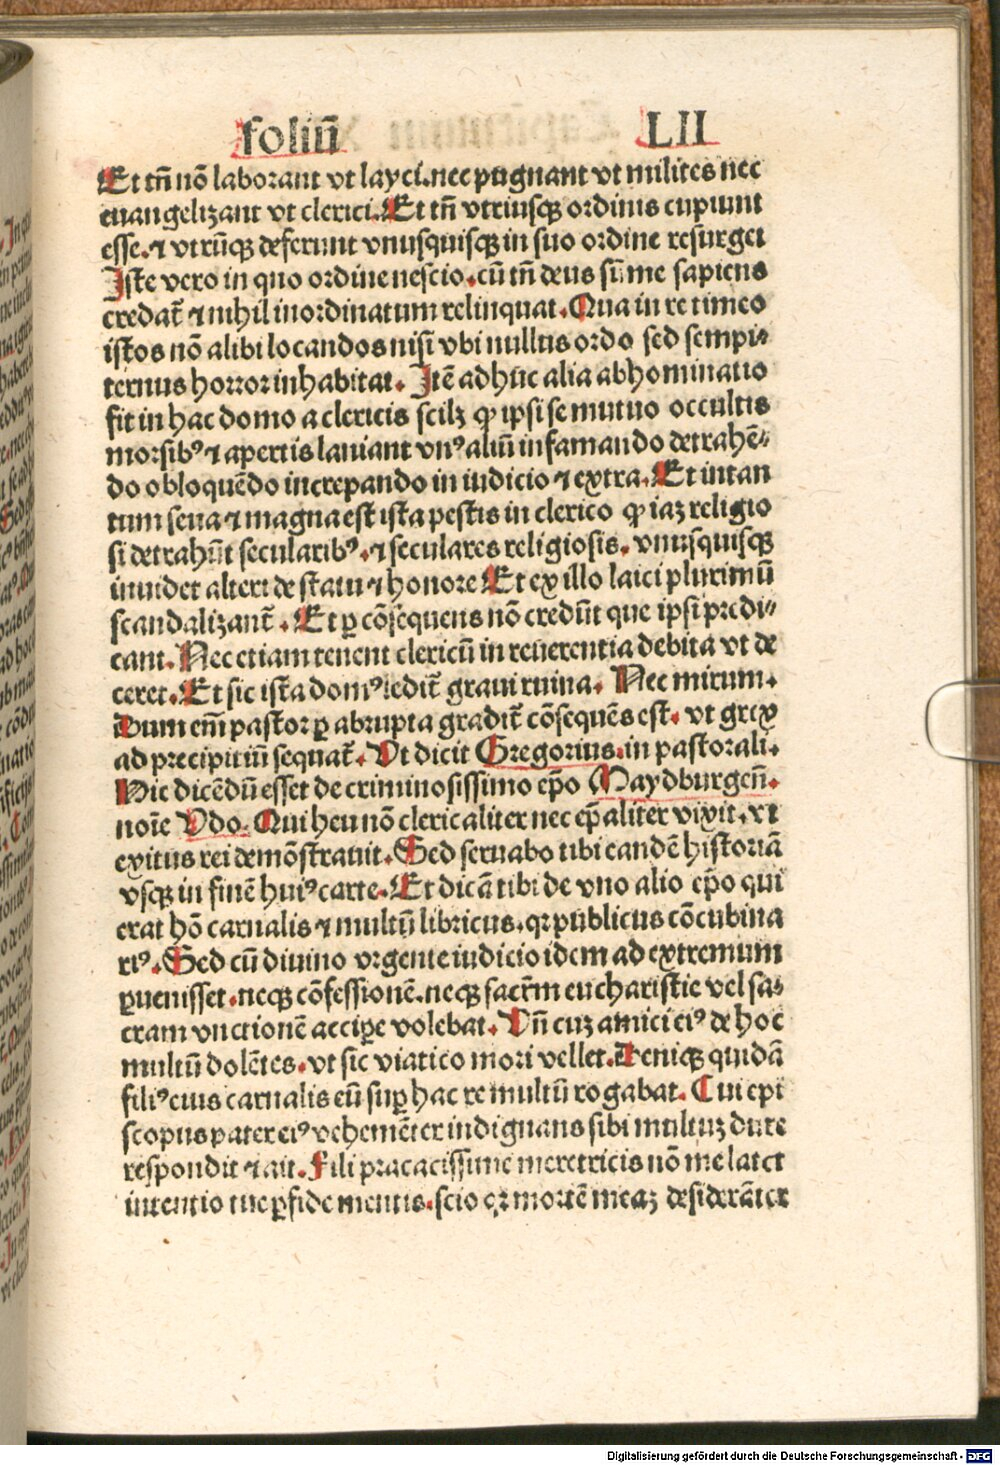 foliū LII
Et tñ nō laborant vt layci. nec pugnant vt milites nec
euangelizant vt clerici. Et tñ vtriusqꝫ ordinis cupiunt
esse. ⁊ vtrūqꝫ deferunt vnusquisqꝫ in suo ordine resurget
Iste vero in quo ordine nescio. cū tñ deus sūme sapiens
credat̄ ⁊ nihil inordinatum relinquat. Qua in re timeo
istos nō alibi locandos nisi vbi nullus ordo sed sempi⸗
ternus horror inhabitat. Itē ad hūc alia abhominatio
fit in hac domo a clericis scilꝫ ꝙ ipsi se mutuo occultis
morsibꝰ ⁊ apertis laniant vnꝰ aliū infamando detrahē⸗
do obloquēdo increpando in iudicio ⁊ extra. Et intan
tum seua ⁊ magna est ista pestis in clerico ꝙ iaꝫ religio
si detrahūt secularibꝰ. ⁊ seculares religiosis. vnusquisqꝫ
inuidet alteri de statu ⁊ honore Et ex illo laici plurimū
scandalizant̄. Et ꝑ cōsequens nō credūt que ipsi predi⸗
cant. Nec etiam tenent clericū in reuerentia debita vt de
ceret. Et sic ista domꝰ ledit̄ graui ruina. Nec mirum.
Dum em̄ pastor ꝑ abrupta gradit̄ cōsequēs est. vt grex
ad precipitiū sequat̄. Vt dicit Gregorius. in pastorali.
Hic dicēdū esset de criminosissimo ep̄o Maydburgeñ.
noīe Vdo. Qui heu nō clericaliter nec ep̄aliter vixit. vt
exitus rei demōstrauit. Sed seruabo tibi eandē historiā
vsqꝫ in finē huiꝰ carte. Et dicā tibi de vno alio ep̄o qui
erat hō carnalis ⁊ multū libricus. qꝛ publicus cōcubina
riꝰ. Sed cū diuino vrgente iudicio idem ad extremum
ꝑuenisset. neqꝫ cōfessionē. neqꝫ sacr̄m eucharistie vel sa⸗
cram vnctionē acciꝑe volebat. Vñ cuꝫ amici eiꝰ de hoc
multū dolētes. vt sic viatico mori vellet. Deniqꝫ quidā
filiꝰ eius carnalis eū suꝑ hac re multū rogabat. Cui epi
scopus pater eiꝰ vehemēter indignans sibi multuꝫ dure
respondit ⁊ ait. Fili pracacissime meretricis nō me latet
intentio tue ꝑfide mentis. scio qꝛ mortē meaꝫ desiderāter
Digitalisierung gefördert durch die Deutsche Forschungsgemeinschaft - DFG